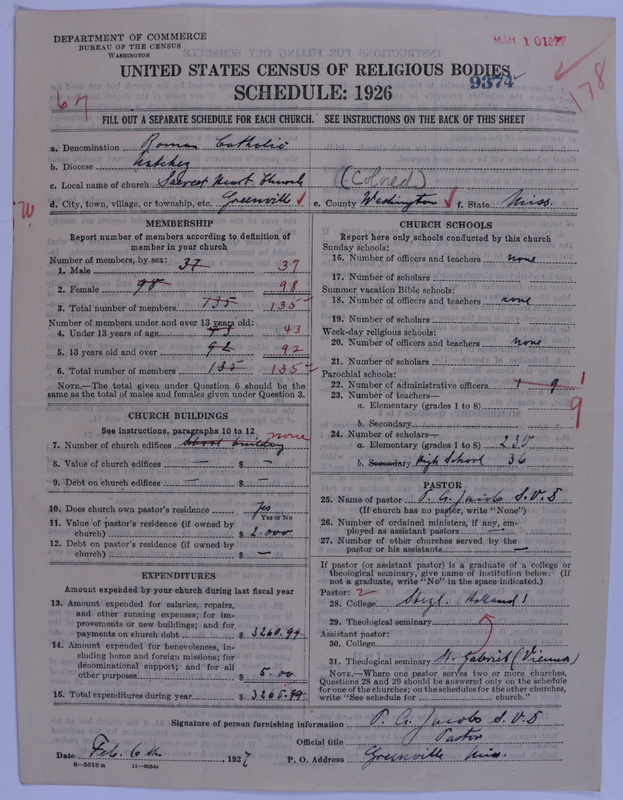 DEPARTMENT OF COMMERCE
BUREAU OF THE CENSUS
WASHINGTON
MAR 10 1927
UNITED STATES CENSUS OF RELIGIOUS BODIES
9374
SCHEDULE: 1926
178
67
FILL OUT A SEPARATE SCHEDULE FOR EACH CHURCH. SEE INSTRUCTIONS ON THE BACK OF THIS SHEET
a. Denomination Roman Catholic
b. Diocese Natchez
c. Local name of church Sacred Heart Church (Colored)
d. City, town, village, or township, etc. Greenville e. County Washington f. State Miss.
MEMBERSHIP
Report number of members according to definition of
member in your church
Number of members, by sex:
1. Male 37 37
2. Female 98 98
3. Total number of members 135 135
Number of members under and over 13 years old:
4. Under 13 years of age 43 43
5. 13 years old and over 92 92
6. Total number of members 135 135
NOTE.—The total given under Question 6 should be the
same as the total of males and females given under Question 3.
CHURCH BUILDINGS
See instructions, paragraphs 10 to 12
7. Number of church edifices School building none
8. Value of church edifices — $ —
9. Debt on church edifices — $ —
10. Does church own pastor's residence yes
Yes or No
11. Value of pastor's residence (if owned by
church) $ 2.000
12. Debt on pastor's residence (if owned by
church) $ —
EXPENDITURES
Amount expended by your church during last fiscal year
13. Amount expended for salaries, repairs,
and other running expenses; for im-
provements or new buildings; and for
payments on church debt $ 3260.99
14. Amount expended for benevolences, in-
cluding home and foreign missions; for
denominational support; and for all
other purposes $ 5.00
15. Total expenditures during year $ 3265.99
CHURCH SCHOOLS
Report here only schools conducted by this church
Sunday schools:
16. Number of officers and teachers none
17. Number of scholars
Summer vacation Bible schools:
18. Number of officers and teachers none
19. Number of scholars
Week-day religious schools:
20. Number of officers and teachers none
21. Number of scholars
Parochial schools:
22. Number of administrative officers 1 9 1
23. Number of teachers— 9
a. Elementary (grades 1 to 8)
b. Secondary
24. Number of scholars—
a. Elementary (grades 1 to 8) 230
b. Secondary High School 36
PASTOR
25. Name of pastor P. G. Jacobs S.V.D
(If church has no pastor, write "None")
26. Number of ordained ministers, if any, em-
ployed as assistant pastors —
27. Number of other churches served by the
pastor or his assistants —
If pastor (or assistant pastor) is a graduate of a college or
theological seminary, give name of institution below. (If
not a graduate, write "No" in the space indicated.)
Pastor: 2
28. College Steyl Holland
29. Theological seminary
Assistant pastor:
30. College
31. Theological seminary St. Gabriel (Vienna)
NOTE.—Where one pastor serves two or more churches,
Questions 28 and 29 should be answered only on the schedule
for one of the churches; on the schedules for the other churches,
write "See schedule for church."
Signature of person furnishing information P. G. Jacobs S.V.D
Official title Pastor
Date Feb. 6th, 1927 P. O. Address Greenville Miss.
8—5518a 11—9554c